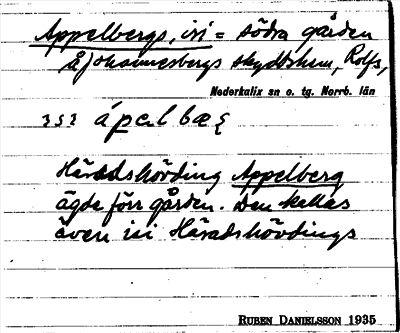 Appelbergs, isi = södra gården
å Johannesbergs skyddshem, Rolfs,
Nederkalix sn o. tg. Norrb. län
ápalbæ
Häradshövding Appelberg
ägde förr gården. Den kallas
även isi Häradshövdings
RUBEN DANIELSSON 1935